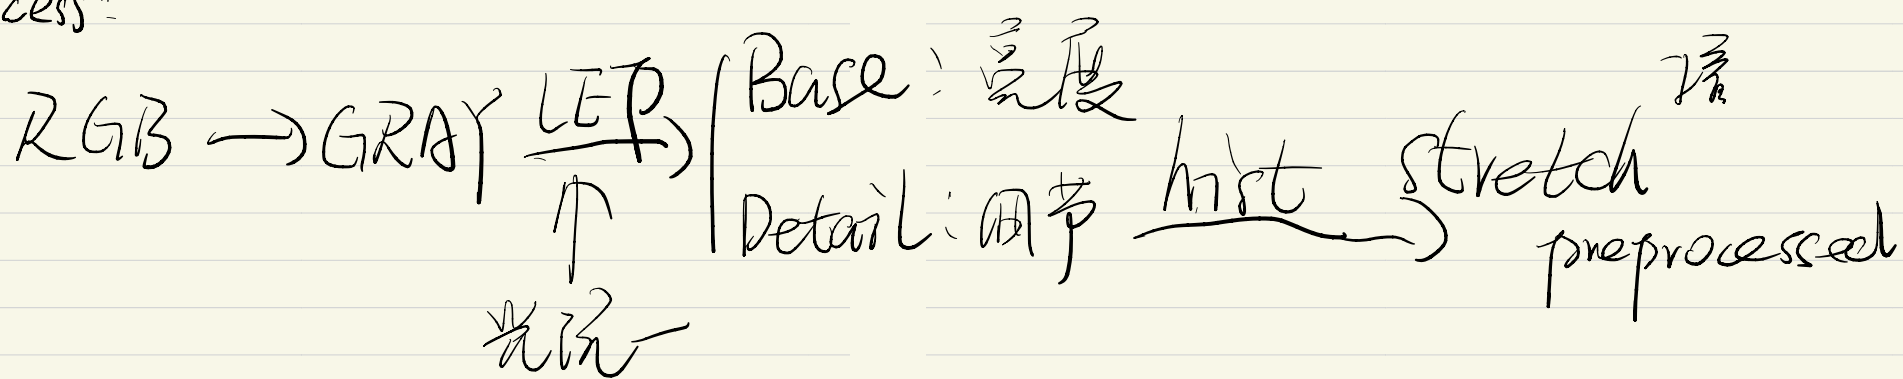 cess:
RGB → GRAY LEP → Base: 亮度
Detail: 细节 hist → stretch
preprocessed
光流一